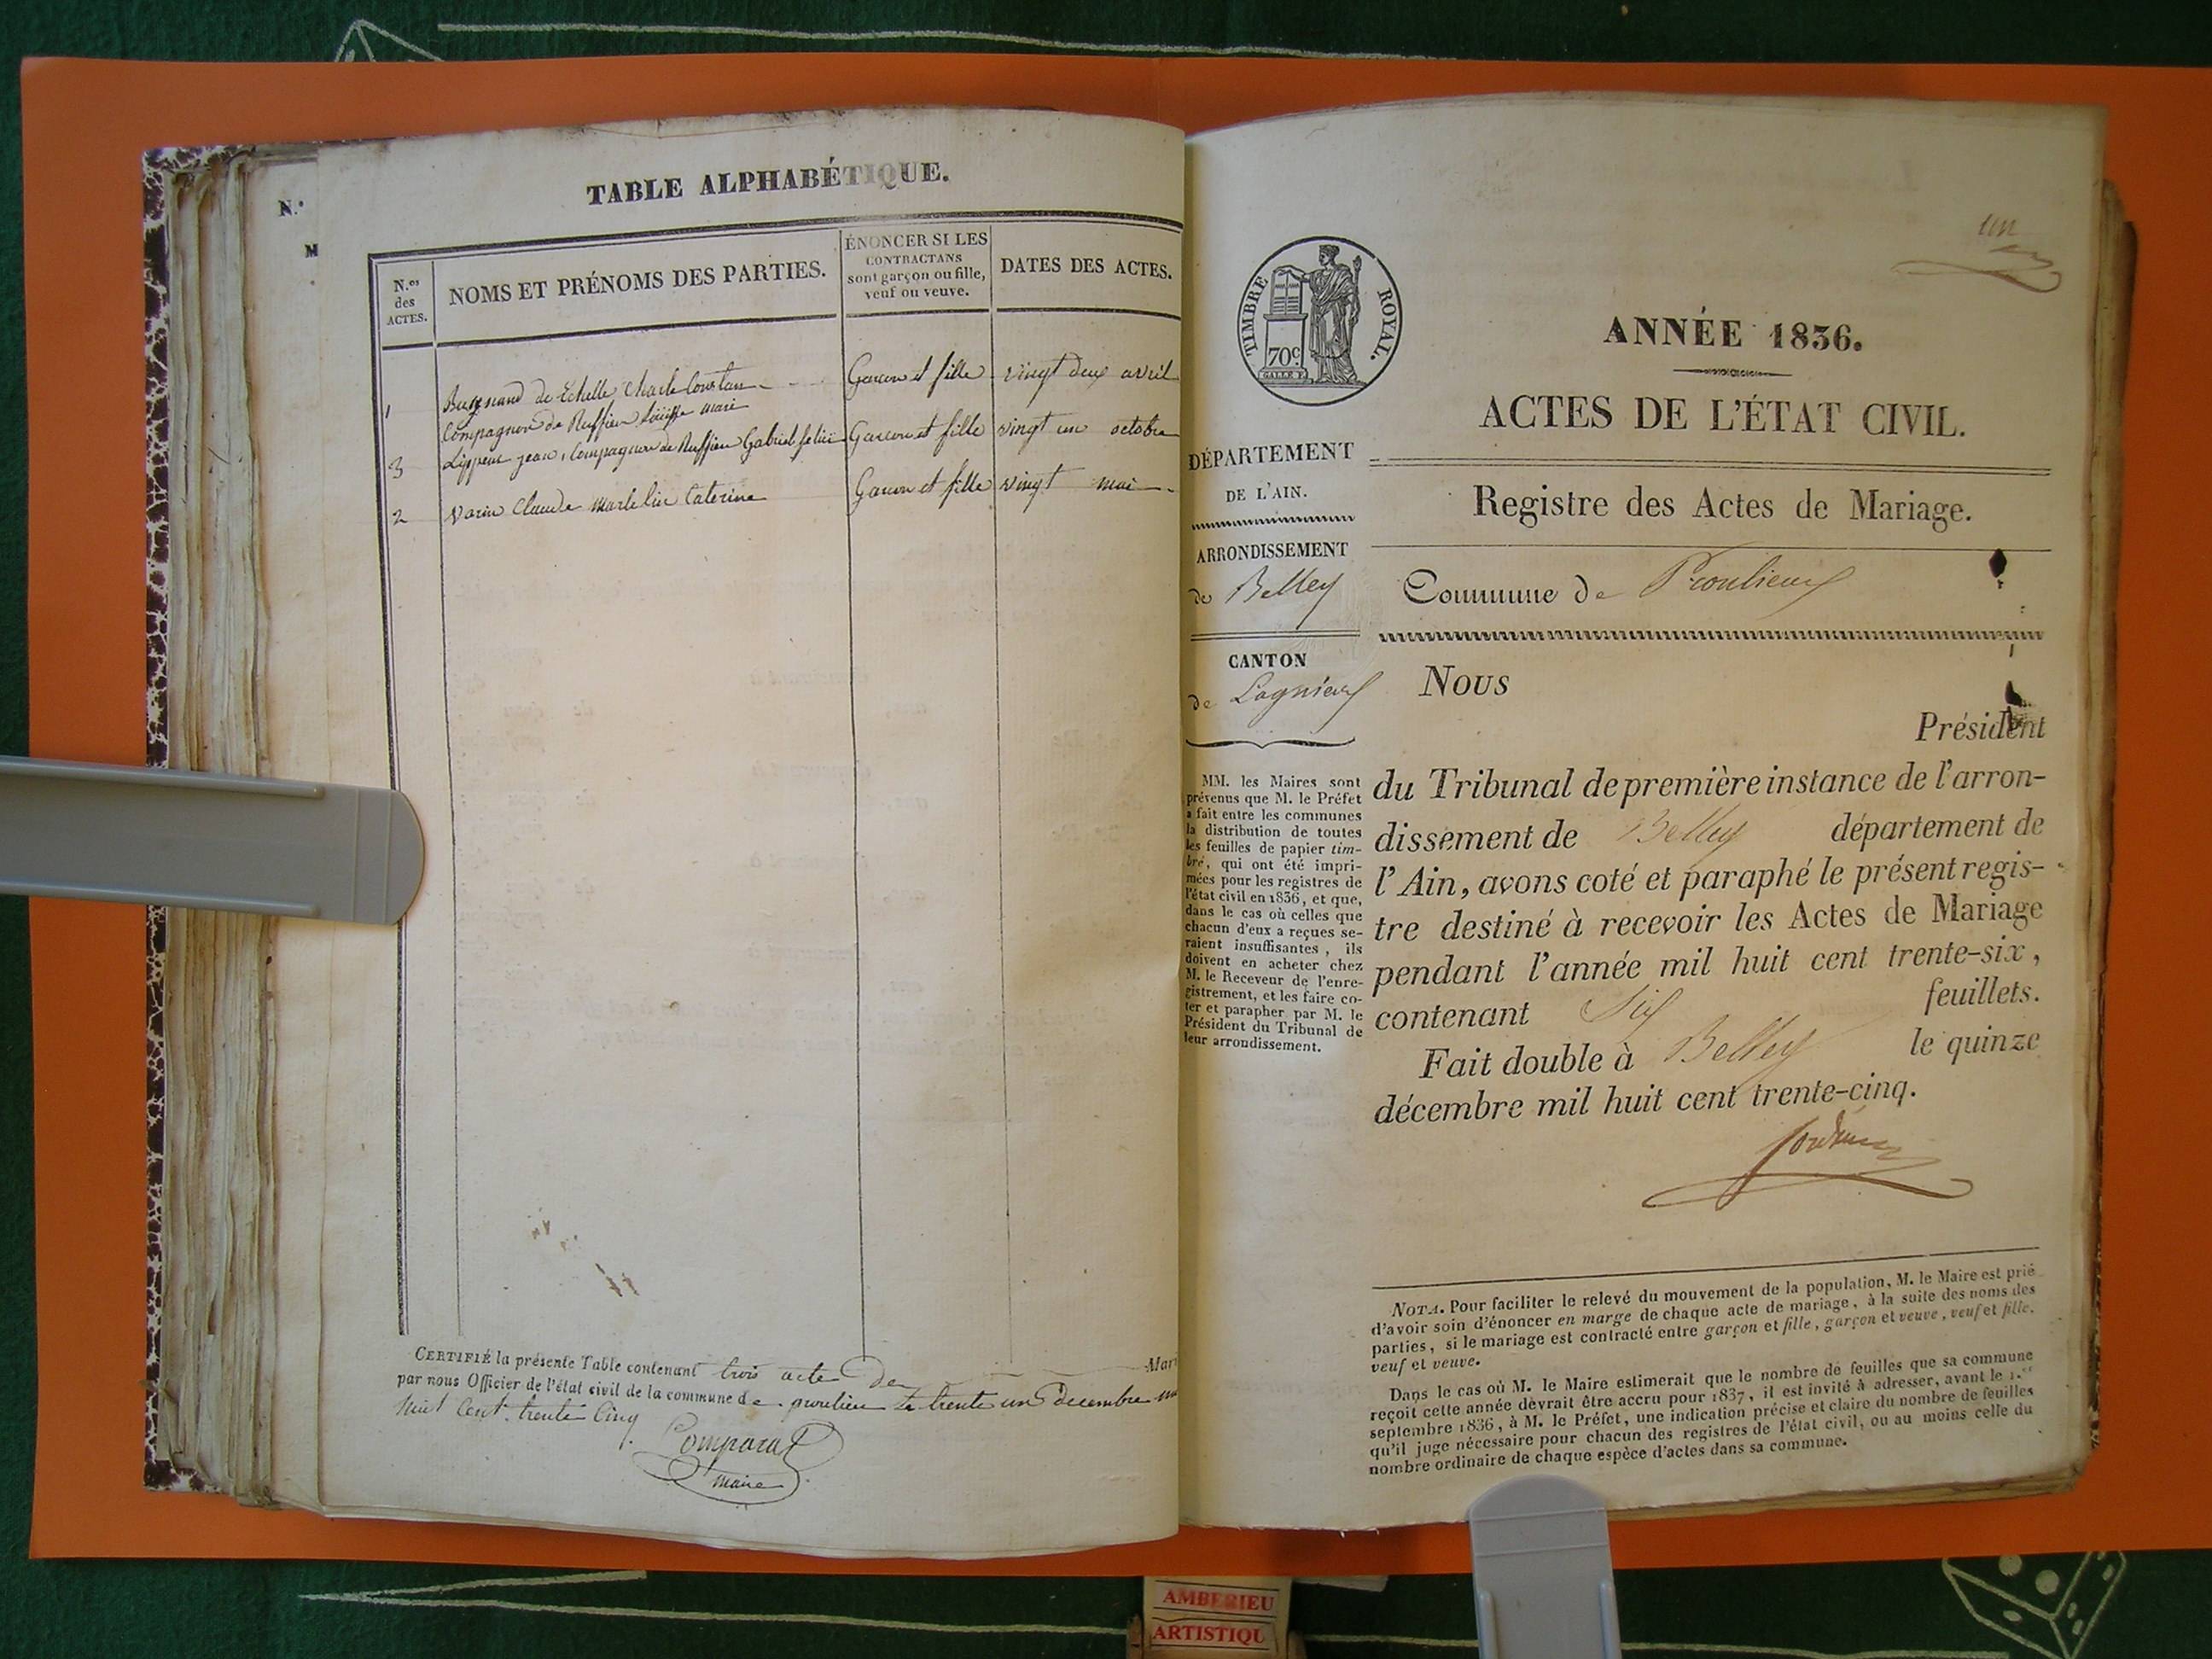 N.º
M
TABLE ALPHABÉTIQUE.
N.os
des
ACTES.
NOMS ET PRÉNOMS DES PARTIES.
ÉNONCER SI LES
CONTRACTANS
sont garçon ou fille,
veuf ou veuve.
DATES DES ACTES.
1 de Echelle Charle Constan Garcon et fille vingt deux avril
Compagnon de Ruffieu Louise mari
3 Lippens jean, Compagnon de Ruffieu Gabriel felici Garcon et fille vingt un octobre
2 Varin Claude Caterine Garcon et fille vingt mai
CERTIFIÉ la présente Table contenant trois acte de Mari
par nous Officier de l'état civil de la commune de proulieu le trente un decembre mil
huit Cent trente Cinq
Comparat
maire
un
TIMBRE ROYAL.
70c.
GALLE F.
ANNÉE 1836.
ACTES DE L'ÉTAT CIVIL.
DÉPARTEMENT
DE L'AIN.
Registre des Actes de Mariage.
ARRONDISSEMENT
de Belley
Commune de Proulieux
CANTON
de Lagnieux
Nous
Président
du Tribunal de première instance de l'arron-
dissement de Belley département de
l'Ain, avons coté et paraphé le présent regis-
tre destiné à recevoir les Actes de Mariage
pendant l'année mil huit cent trente-six,
contenant Six feuillets.
Fait double à Belley le quinze
décembre mil huit cent trente-cinq.
MM. les Maires sont
prévenus que M. le Préfet
a fait entre les communes
la distribution de toutes
les feuilles de papier tim-
bré, qui ont été impri-
mées pour les registres de
l'état civil en 1836, et que,
dans le cas où celles que
chacun d'eux a reçues se-
raient insuffisantes, ils
doivent en acheter chez
M. le Receveur de l'enre-
gistrement, et les faire co-
ter et parapher par M. le
Président du Tribunal de
leur arrondissement.
NOTA. Pour faciliter le relevé du mouvement de la population, M. le Maire est prié
d'avoir soin d'énoncer en marge de chaque acte de mariage, à la suite des noms des
parties, si le mariage est contracté entre garçon et fille, garçon et veuve, veuf et fille,
veuf et veuve.
Dans le cas où M. le Maire estimerait que le nombre de feuilles que sa commune
reçoit cette année devrait être accru pour 1837, il est invité à adresser, avant le 1.er
septembre 1836, à M. le Préfet, une indication précise et claire du nombre de feuilles
qu'il juge nécessaire pour chacun des registres de l'état civil, ou au moins celle du
nombre ordinaire de chaque espèce d'actes dans sa commune.
AMBERIEU
ARTISTIQU